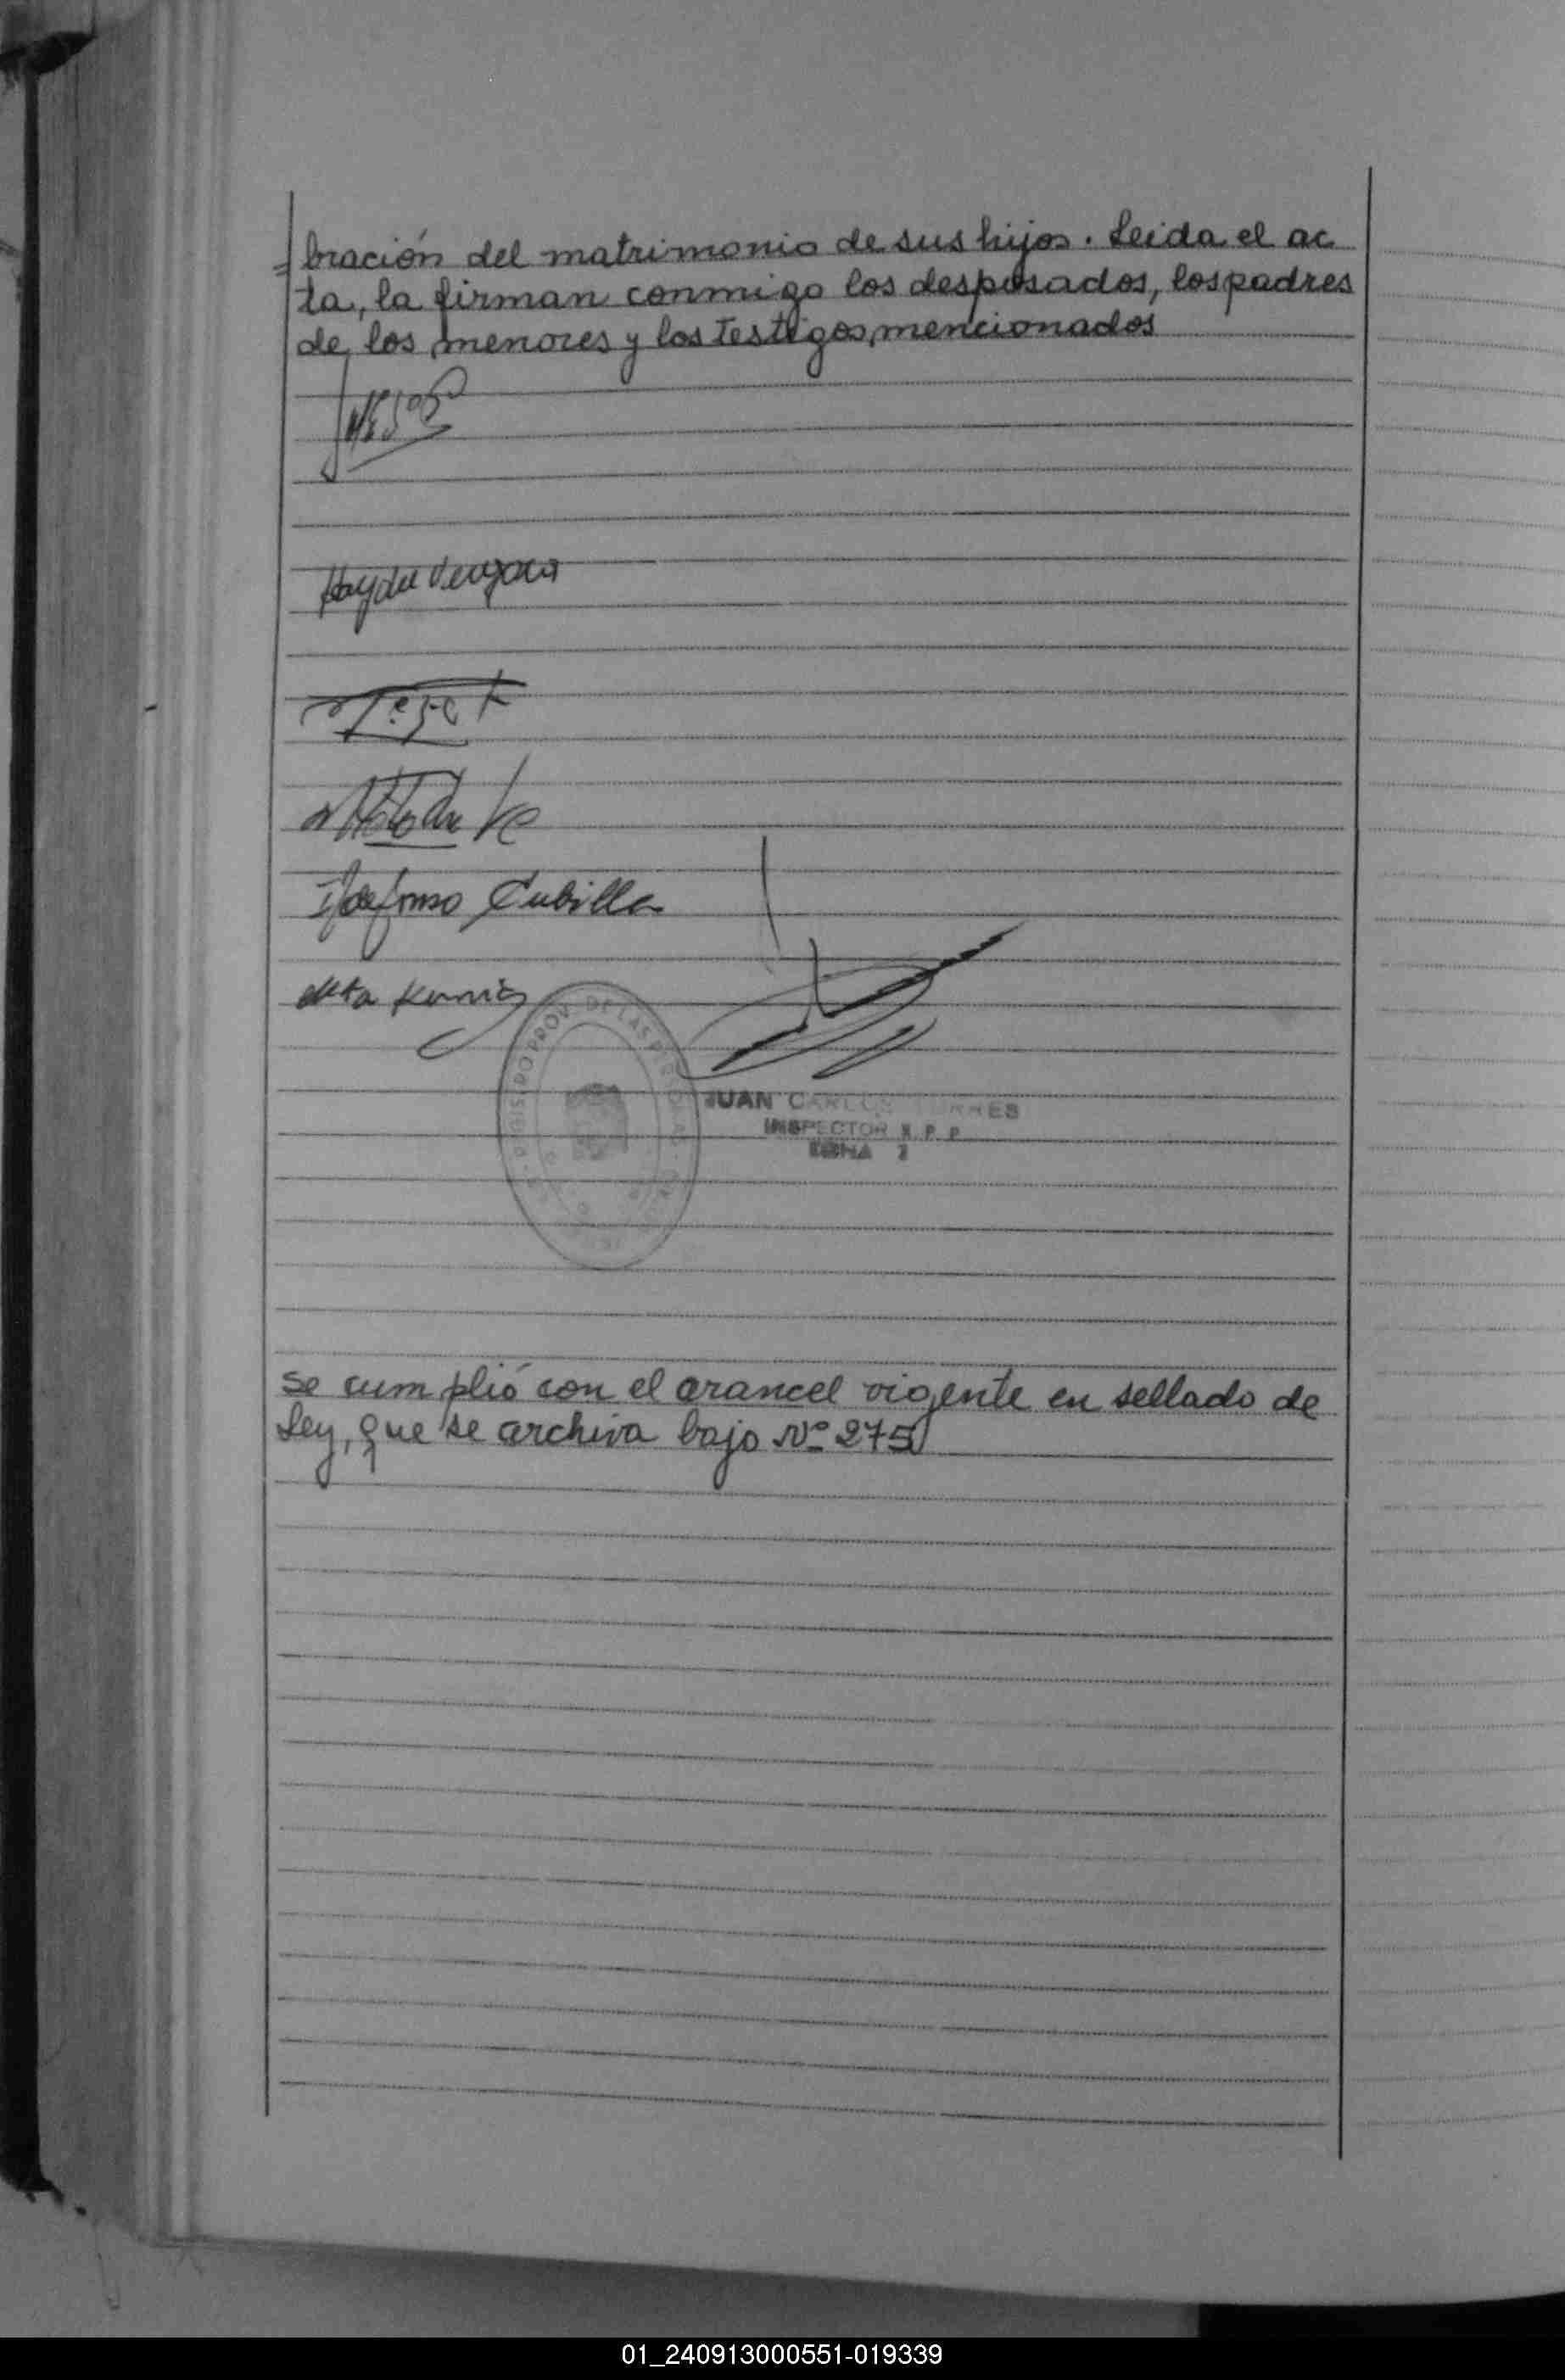 =bración del matrimonio de sus hijos. Leida el ac
ta, la firman conmigo los desposados, los padres
de los menores y los testigos mencionados
Haydee Vergara
Ildefonso Cubilla
REGISTRO PROV. DE LAS PERSONAS
JUAN CARLOS TORRES
INSPECTOR R. P. P.
ZONA
Se cumplió con el arancel vigente en sellado de
Ley, que se archiva bajo Nº 275
01_240913000551-019339